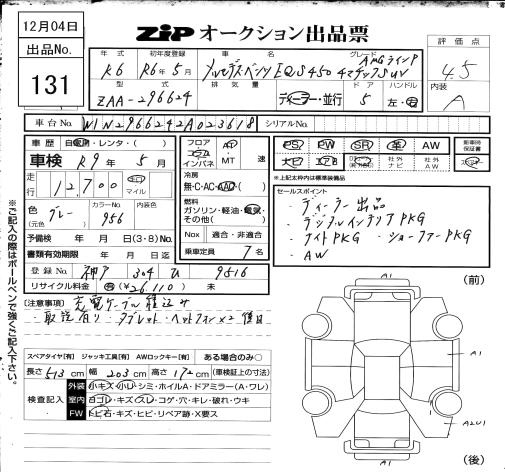 12月04日
ZIP オークション出品票
出品No.
131
年式 初年度登録 車名 グレード 評価点
R6 R6年5月 メルセデスベンツ EQS450 4マチックSUV AMGラインP 4.5
型式 排気量 ドア ハンドル 内装
ZAA-296624 ディーラー・並行 5 左・右 A
車台No. W1N2966242A023618 シリアルNo.
車歴 自家用・レンタ・( )
フロア コラム インパネ AT MT 速
PS PW SR 革 AW 新車時保証書
車検 R9年5月
冷房 無・C・AC・AAC
エアB 社外ナビ 社外AW
※上記太枠内は標準装備品
走行 12,700 km マイル
燃料 ガソリン・軽油・電気・その他( )
セールスポイント
・ディーラー出品
・デジタルインテリアPKG
・ナイトPKG ・ショーファーPKG
・AW
色(元色) グレー カラーNo. 956 内装色
予備検 年 月 日(3・8)No.
Nox 適合・非適合
書類有効期限 年 月 日迄
乗車定員 7名
登録No. 神戸 304 9516
リサイクル料金 有(¥26,110) 未
注意事項 充電ケーブル積込み
・取説有り・タブレット・ヘッドフォン×2 後日
※ご記入の際はボールペンで強くご記入下さい。
スペアタイヤ[有] ジャッキ工具[有] AWロックキー[有] ある場合のみ○
長さ 513cm 幅 203cm 高さ 172cm (車検証上の寸法)
検査記入
外装 小キズ・小凹・シミ・ホイルA・ドアミラー(A・ワレ)
室内 ヨゴレ・キズ・スレ・コゲ・穴・キレ・破れ・ウキ
FW トビ石・キズ・ヒビ・リペア跡・X要ス
A1
(前)
A1
A2U1
A1
(後)